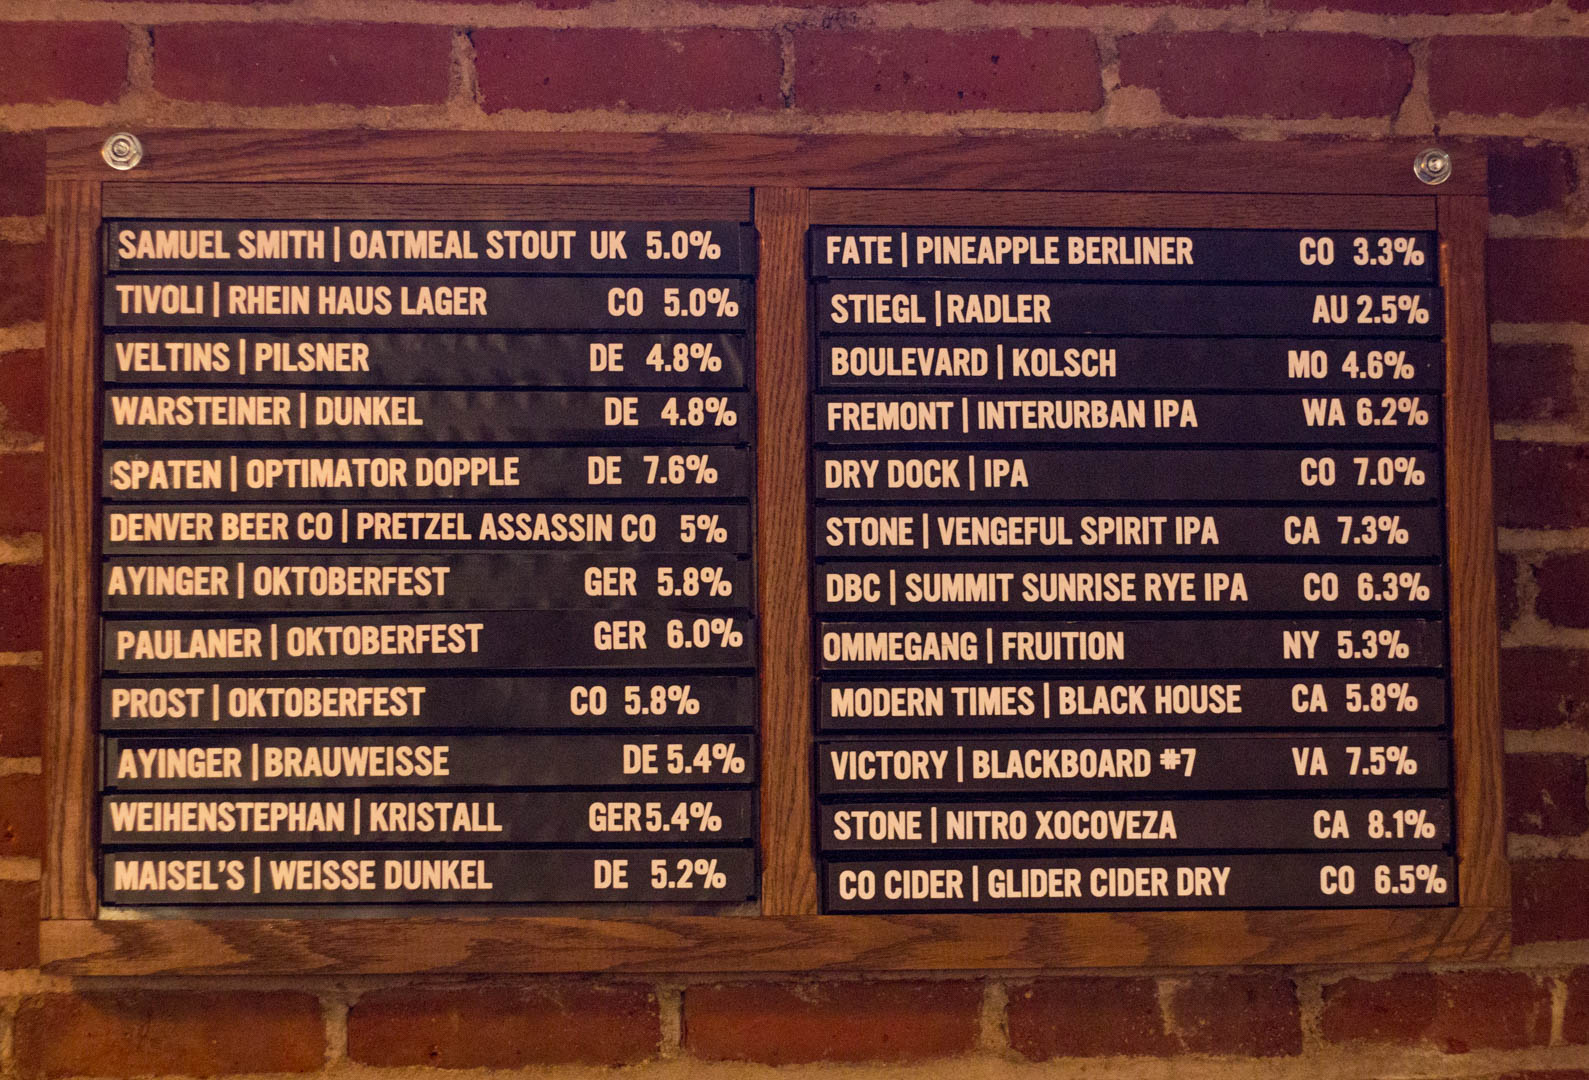 SAMUEL SMITH | OATMEAL STOUT UK 5.0%
TIVOLI | RHEIN HAUS LAGER CO 5.0%
VELTINS | PILSNER DE 4.8%
WARSTEINER | DUNKEL DE 4.8%
SPATEN | OPTIMATOR DOPPLE DE 7.6%
DENVER BEER CO | PRETZEL ASSASSIN CO 5%
AYINGER | OKTOBERFEST GER 5.8%
PAULANER | OKTOBERFEST GER 6.0%
PROST | OKTOBERFEST CO 5.8%
AYINGER | BRAUWEISSE DE 5.4%
WEIHENSTEPHAN | KRISTALL GER 5.4%
MAISEL'S | WEISSE DUNKEL DE 5.2%
FATE | PINEAPPLE BERLINER CO 3.3%
STIEGL | RADLER AU 2.5%
BOULEVARD | KOLSCH MO 4.6%
FREMONT | INTERURBAN IPA WA 6.2%
DRY DOCK | IPA CO 7.0%
STONE | VENGEFUL SPIRIT IPA CA 7.3%
DBC | SUMMIT SUNRISE RYE IPA CO 6.3%
OMMEGANG | FRUITION NY 5.3%
MODERN TIMES | BLACK HOUSE CA 5.8%
VICTORY | BLACKBOARD #7 VA 7.5%
STONE | NITRO XOCOVEZA CA 8.1%
CO CIDER | GLIDER CIDER DRY CO 6.5%